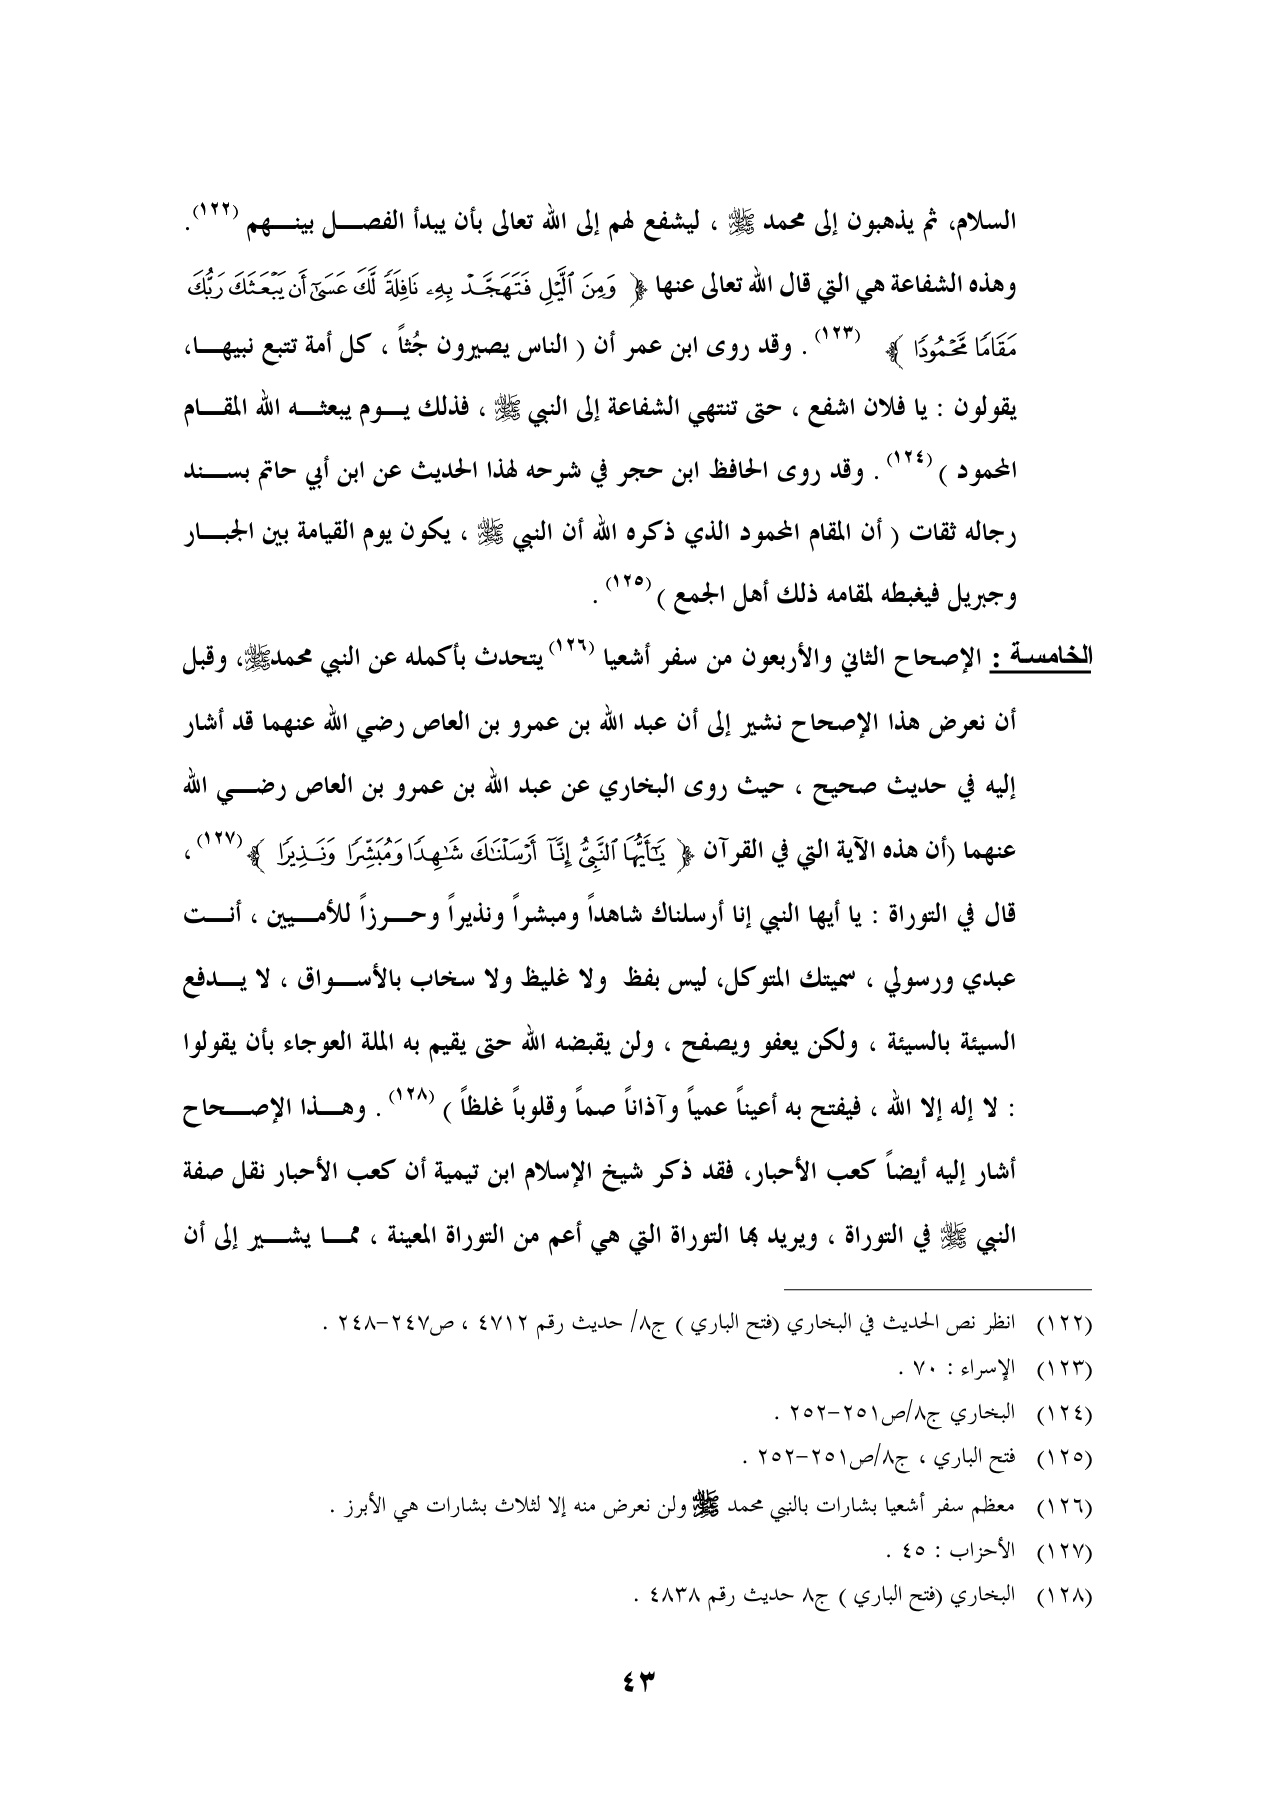 السلام، ثم يذهبون إلى محمد ﷺ ، ليشفع لهم إلى الله تعالى بأن يبدأ الفصل بينهم (١٢٢).
وهذه الشفاعة هي التي قال الله تعالى عنها ﴿ وَمِنَ ٱلَّيْلِ فَتَهَجَّدْ بِهِۦ نَافِلَةً لَّكَ عَسَىٰٓ أَن يَبْعَثَكَ رَبُّكَ
مَقَامًا مَّحْمُودًا ﴾ (١٢٣) . وقد روى ابن عمر أن ( الناس يصيرون جُثاً ، كل أمة تتبع نبيها،
يقولون : يا فلان اشفع ، حتى تنتهي الشفاعة إلى النبي ﷺ ، فذلك يوم يبعثه الله المقام
المحمود ) (١٢٤) . وقد روى الحافظ ابن حجر في شرحه لهذا الحديث عن ابن أبي حاتم بسند
رجاله ثقات ( أن المقام المحمود الذي ذكره الله أن النبي ﷺ ، يكون يوم القيامة بين الجبار
وجبريل فيغبطه لمقامه ذلك أهل الجمع ) (١٢٥) .
الخامسة : الإصحاح الثاني والأربعون من سفر أشعيا (١٢٦) يتحدث بأكمله عن النبي محمدﷺ، وقبل
أن نعرض هذا الإصحاح نشير إلى أن عبد الله بن عمرو بن العاص رضي الله عنهما قد أشار
إليه في حديث صحيح ، حيث روى البخاري عن عبد الله بن عمرو بن العاص رضي الله
عنهما (أن هذه الآية التي في القرآن ﴿ يَٰٓأَيُّهَا ٱلنَّبِيُّ إِنَّآ أَرْسَلْنَٰكَ شَٰهِدًا وَمُبَشِّرًا وَنَذِيرًا ﴾(١٢٧) ،
قال في التوراة : يا أيها النبي إنا أرسلناك شاهداً ومبشراً ونذيراً وحرزاً للأميين ، أنت
عبدي ورسولي ، سميتك المتوكل، ليس بفظ ولا غليظ ولا سخاب بالأسواق ، لا يدفع
السيئة بالسيئة ، ولكن يعفو ويصفح ، ولن يقبضه الله حتى يقيم به الملة العوجاء بأن يقولوا
: لا إله إلا الله ، فيفتح به أعيناً عمياً وآذاناً صماً وقلوباً غلظاً ) (١٢٨) . وهذا الإصحاح
أشار إليه أيضاً كعب الأحبار، فقد ذكر شيخ الإسلام ابن تيمية أن كعب الأحبار نقل صفة
النبي ﷺ في التوراة ، ويريد بها التوراة التي هي أعم من التوراة المعينة ، مما يشير إلى أن
(١٢٢) انظر نص الحديث في البخاري (فتح الباري ) ج٨/ حديث رقم ٤٧١٢ ، ص٢٤٧-٢٤٨ .
(١٢٣) الإسراء : ٧٠ .
(١٢٤) البخاري ج٨/ص٢٥١-٢٥٢ .
(١٢٥) فتح الباري ، ج٨/ص٢٥١-٢٥٢ .
(١٢٦) معظم سفر أشعيا بشارات بالنبي محمد ﷺ ولن نعرض منه إلا لثلاث بشارات هي الأبرز .
(١٢٧) الأحزاب : ٤٥ .
(١٢٨) البخاري (فتح الباري ) ج٨ حديث رقم ٤٨٣٨ .
٤٣